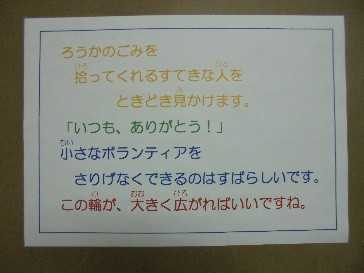 ろうかのごみを
拾ってくれるすてきな人を
ときどき見かけます。
「いつも、ありがとう！」
小さなボランティアを
さりげなくできるのはすばらしいです。
この輪が、大きく広がればいいですね。